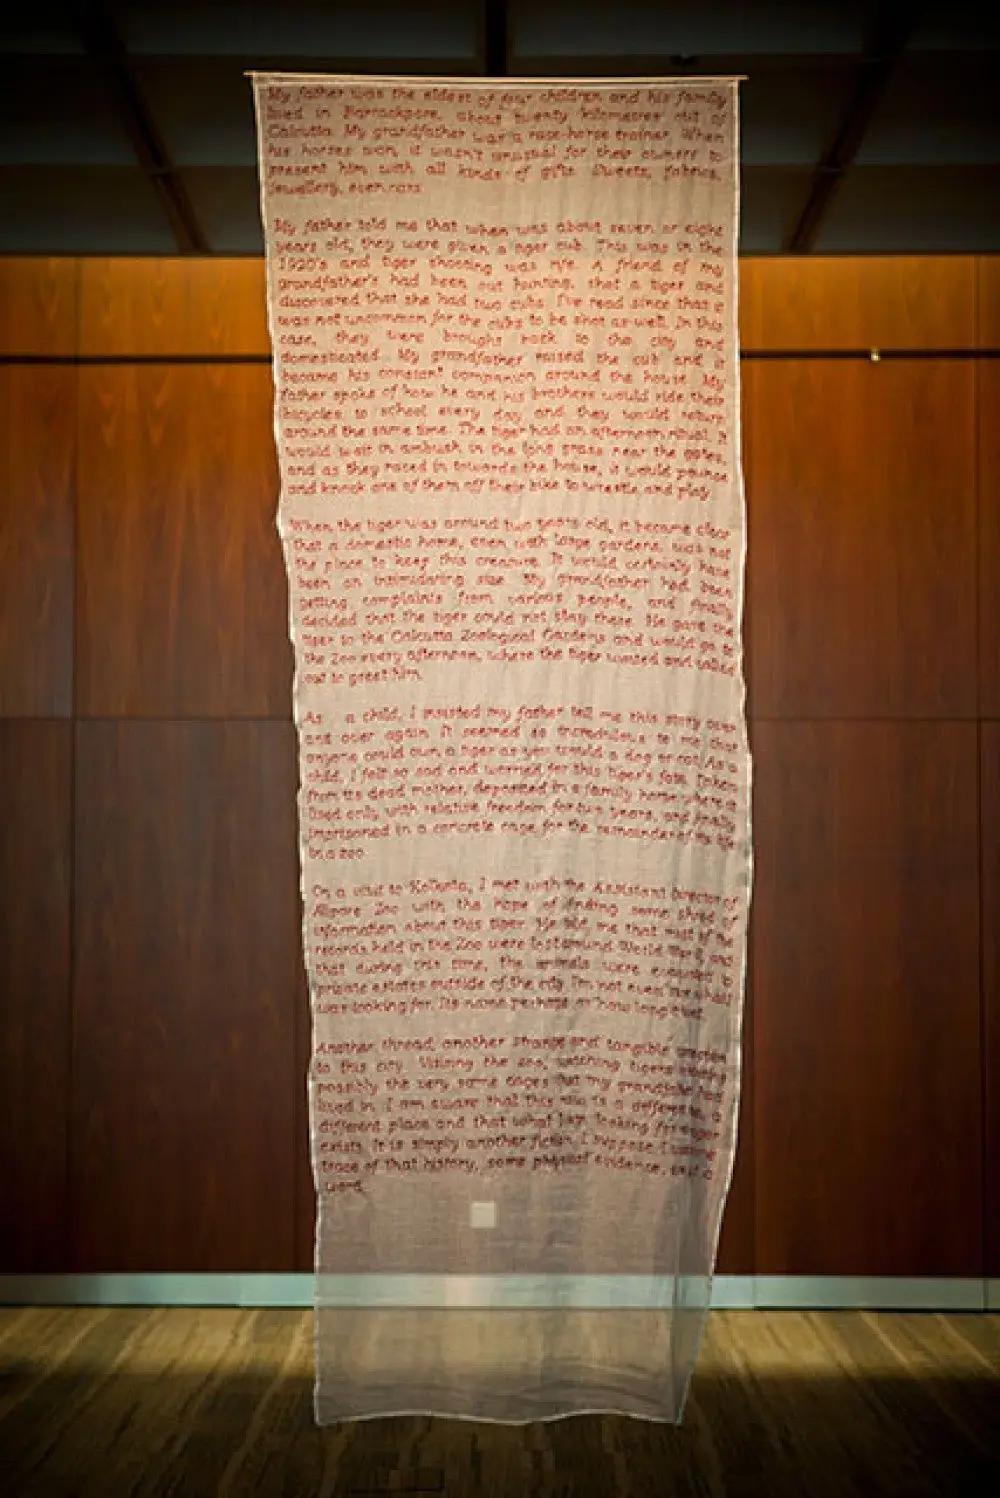 My father was the eldest of four children and his family
lived in Barrackpore, about twenty kilometres out of
Calcutta. My grandfather was a race-horse trainer. When
his horses won, it wasn't unusual for their owners to
present him with all kinds of gifts. Sweets, fabrics,
jewellery, even cars.
My father told me that when was about seven or eight
years old, they were given a tiger cub. This was in the
1920's and tiger shooting was rife. A friend of my
grandfather's had been out hunting, shot a tiger and
discovered that she had two cubs. I've read since that it
was not uncommon for the cubs to be shot as well. In this
case, they were brought back to the city and
domesticated. My grandfather raised the cub and it
became his constant companion around the house. My
father spoke of how he and his brothers would ride their
bicycles to school every day and they would return
around the same time. The tiger had an afternoon ritual. It
would wait in ambush in the long grass near the gates,
and as they raced in towards the house, it would pounce
and knock one of them off their bike to wrestle and play.
When the tiger was around two years old, it became clear
that a domestic home, even with large gardens, was not
the place to keep this creature. It would certainly have
been an intimidating size. My grandfather had been
getting complaints from various people, and finally
decided that the tiger could not stay there. He gave the
tiger to the Calcutta Zoological Gardens and would go to
the Zoo every afternoon, where the tiger waited and called
out to greet him.
As a child, I insisted my father tell me this story over
and over again. It seemed so incredulous to me that
anyone could own a tiger as you would a dog or cat. As a
child, I felt so sad and worried for this tiger's fate. Taken
from its dead mother, deposited in a family home where it
lived only with relative freedom for two years, and finally
imprisoned in a concrete cage for the remainder of its life
in a zoo.
On a visit to Kolkata, I met with the Assistant Director of
Alipore Zoo with the hope of finding some shred of
information about this tiger. He told me that most of the
records held in the Zoo were lost around World War II, and
that during this time, the animals were evacuated to
private estates outside of the city. I'm not even sure what I
was looking for. Its name perhaps or how long it
Another thread, another strange and tangible
to this city. Visiting the zoo, watching tigers
possibly the very same cages that my grandfather had
in. I am aware that this now is a different
different place and that what I am looking for no longer
exists. It is simply another fiction, I suppose. I
trace of that history, some physical evidence,
word.